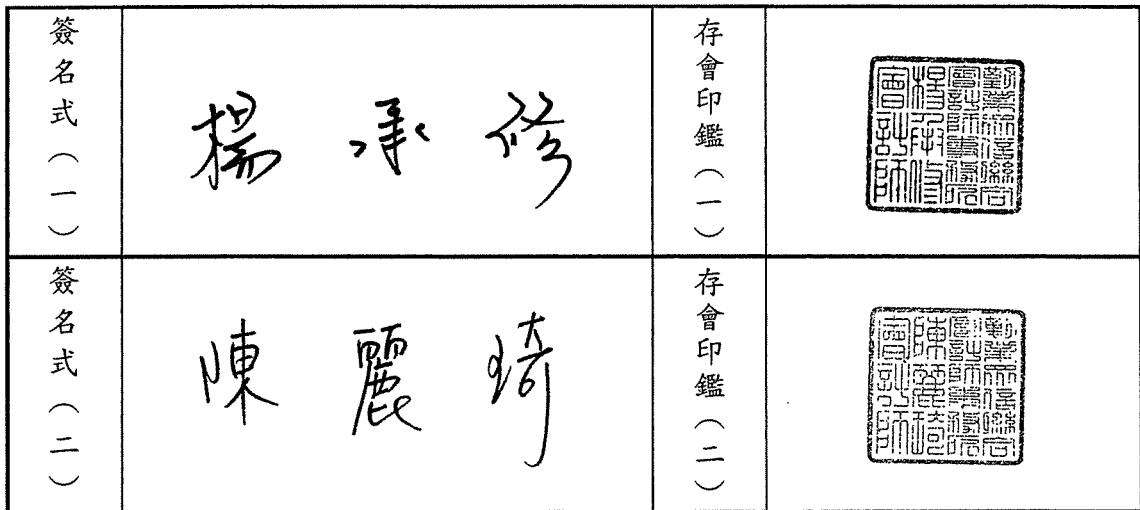 簽名式(一)
楊承修
存會印鑑(一)
勤業眾信聯合
會計師事務所
楊承修
會計師
簽名式(二)
陳麗琦
存會印鑑(二)
勤業眾信聯合
會計師事務所
陳麗琦
會計師